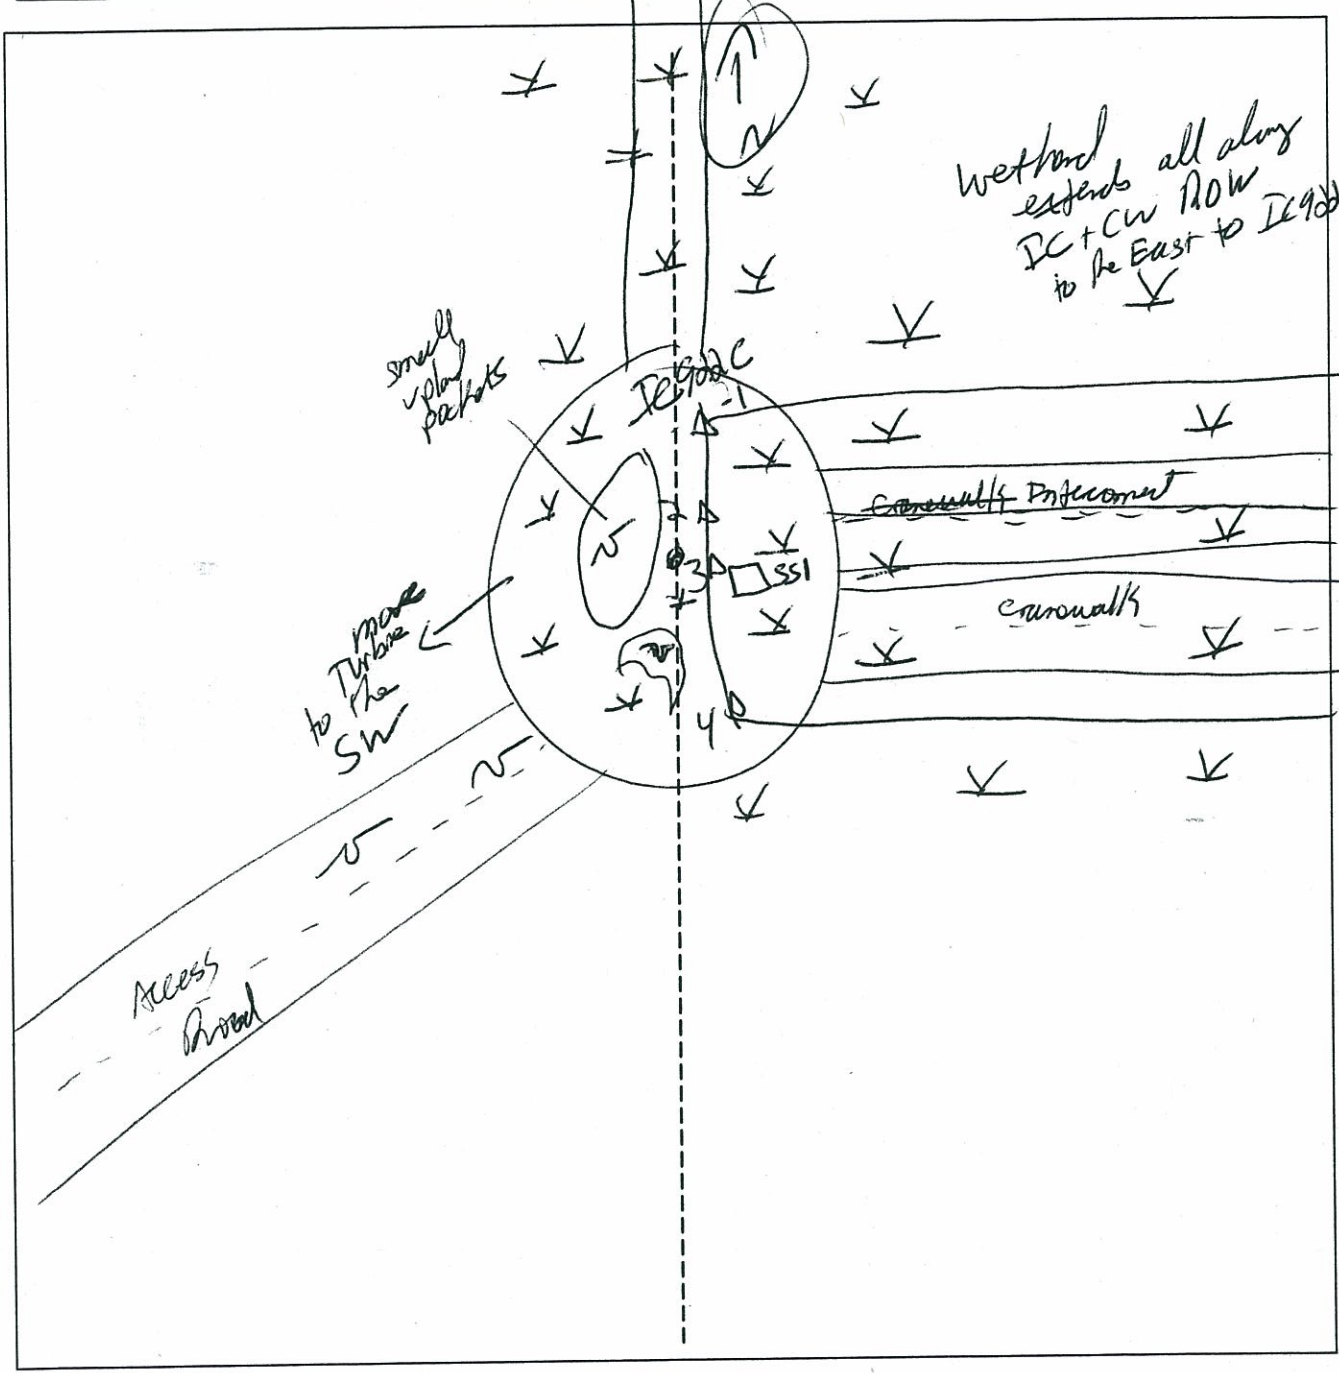 N
wetland
extends all along
IC + CW ROW
to the East to IC9dd
small
upland
pockets
IC9d2C
-1
Cranewalk Interconnect
2
3
SS1
cranewalk
move
Turbine
to the
SW
4
Access
Road